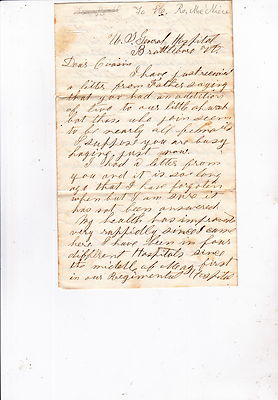 To
U.S General Hospital
Brattleboro Vt
Dear Cousin
I have just received
a letter from Father saying
that you had an addition
of five to our little
but those who join seem
to be nearly all
I suppose you are busy
haying just now
I had a letter from
you and it is so long
ago that I have forgoten
when but I am sure it
has not been answered
My health has improved
very rappidly since I came
here I have been in four
different Hospitals since
the middle of May first
in our Regimental Hospital